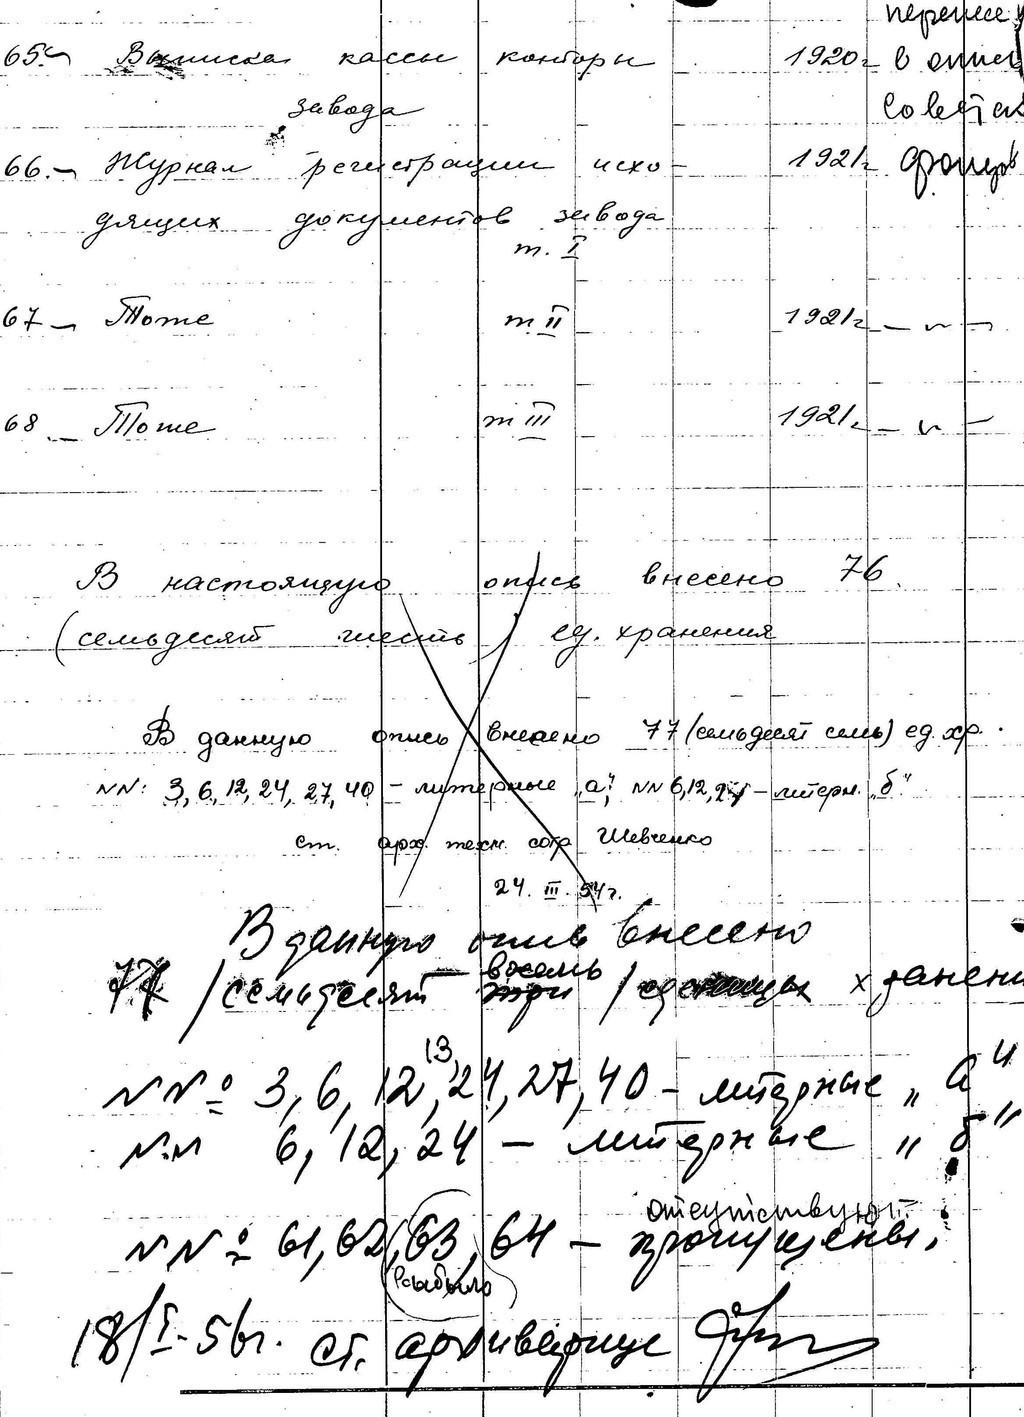 65. Выписка кассы конторы 1920г. в опись
завода Советск
66. Журнал регистрации исхо- 1921г. фондов
дящих документов завода
т. I
67 Тоже т II 1921г.
68 Тоже т III 1921г.
В настоящую опись внесено 76
(семьдесят шесть) ед. хранения
В данную опись внесено 77 (семьдесят семь) ед. хр.
NN: 3, 6, 12, 24, 27, 40 - литерные „а", NN 6, 12, 24 - литерн. „б"
ст. арх. техн. сотр Шевченко
24. III. 54г.
В данную опись внесено
77 /семьдесят три / единицы хранени
13,
NN° 3, 6, 12, 24, 27, 40 - литерные „а"
N.N 6, 12, 24 - литерные „б"
отсутствуют
NN° 61, 62, 63, 64 - пропущены,
18/I-56г. ст.